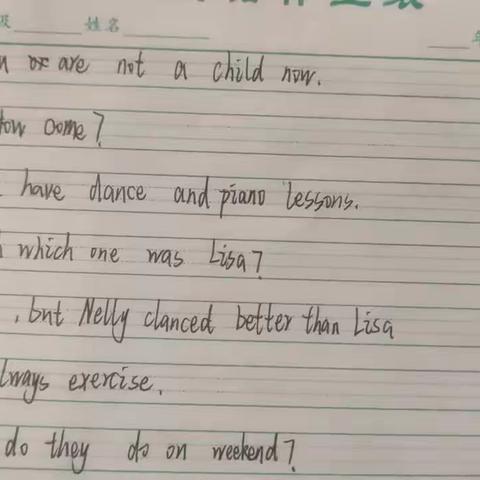 级 姓名
are not a child now.
How come?
have dance and piano lessons.
which one was Lisa?
, but Nelly clanced better than Lisa
always exercise.
do they do on weekend?